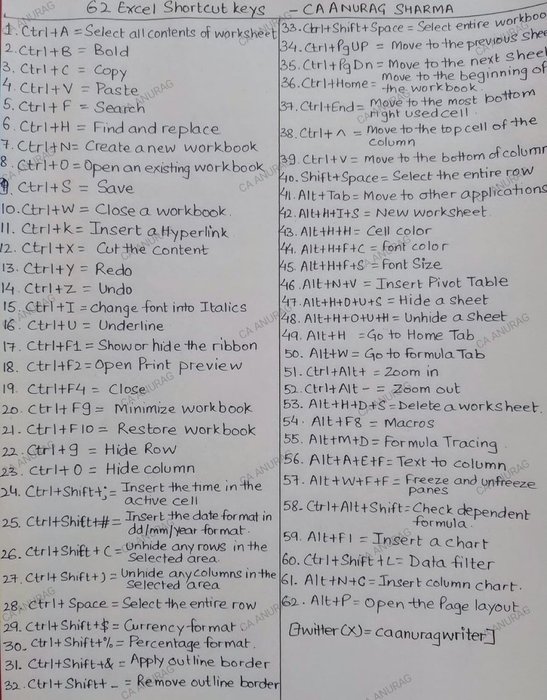 62 Excel Shortcut keys - CA ANURAG SHARMA
1. Ctrl+A = Select all contents of worksheet
2. Ctrl+B = Bold
3. Ctrl+C = Copy
4. Ctrl+V = Paste
5. Ctrl+F = Search
6. Ctrl+H = Find and replace
7. Ctrl+N = Create a new workbook
8. Ctrl+O = Open an existing workbook
9. Ctrl+S = Save
10. Ctrl+W = Close a workbook.
11. Ctrl+K = Insert a Hyperlink
12. Ctrl+X = Cut the content
13. Ctrl+Y = Redo
14. Ctrl+Z = Undo
15. Ctrl+I = change font into Italics
16. Ctrl+U = Underline
17. Ctrl+F1 = Show or hide the ribbon
18. Ctrl+F2 = Open Print preview
19. Ctrl+F4 = Close
20. Ctrl+F9 = Minimize workbook
21. Ctrl+F10 = Restore workbook
22. Ctrl+9 = Hide Row
23. Ctrl+0 = Hide column
24. Ctrl+Shift+; = Insert the time in the
active cell
25. Ctrl+Shift+# = Insert the date format in
dd/mm/year format.
26. Ctrl+Shift+( = unhide any rows in the
Selected area.
27. Ctrl+Shift+) = Unhide any columns in the
Selected area
28. Ctrl+Space = Select the entire row
29. Ctrl+Shift+$ = Currency format
30. Ctrl+Shift+% = Percentage format.
31. Ctrl+Shift+& = Apply outline border
32. Ctrl+Shift+_ = Remove outline border
33. Ctrl+Shift+Space = Select entire workboo
34. Ctrl+PgUP = Move to the previous shee
35. Ctrl+PgDn = Move to the next sheet
36. Ctrl+Home = Move to the beginning of
the workbook.
37. Ctrl+End = Move to the most bottom
right used cell.
38. Ctrl+^ = Move to the top cell of the
column
39. Ctrl+v = Move to the bottom of column
40. Shift+Space = Select the entire row
41. Alt+Tab = Move to other applications
42. Alt+H+I+S = New worksheet
43. Alt+H+H = Cell color
44. Alt+H+F+C = font color
45. Alt+H+F+S = Font Size
46. Alt+N+V = Insert Pivot Table
47. Alt+H+O+U+S = Hide a sheet
48. Alt+H+O+U+H = Unhide a sheet
49. Alt+H = Go to Home Tab
50. Alt+W = Go to formula Tab
51. Ctrl+Alt+ = Zoom in
52. Ctrl+Alt- = Zoom out
53. Alt+H+D+S = Delete a worksheet.
54. Alt+F8 = Macros
55. Alt+M+D = Formula Tracing
56. Alt+A+E+F = Text to column
57. Alt+W+F+F = Freeze and unfreeze
panes
58. Ctrl+Alt+Shift = Check dependent
formula.
59. Alt+F1 = Insert a chart
60. Ctrl+Shift+L = Data filter
61. Alt+N+C = Insert column chart.
62. Alt+P = Open the Page layout
[Twitter (X) = caanuragwriter]
CA ANURAG